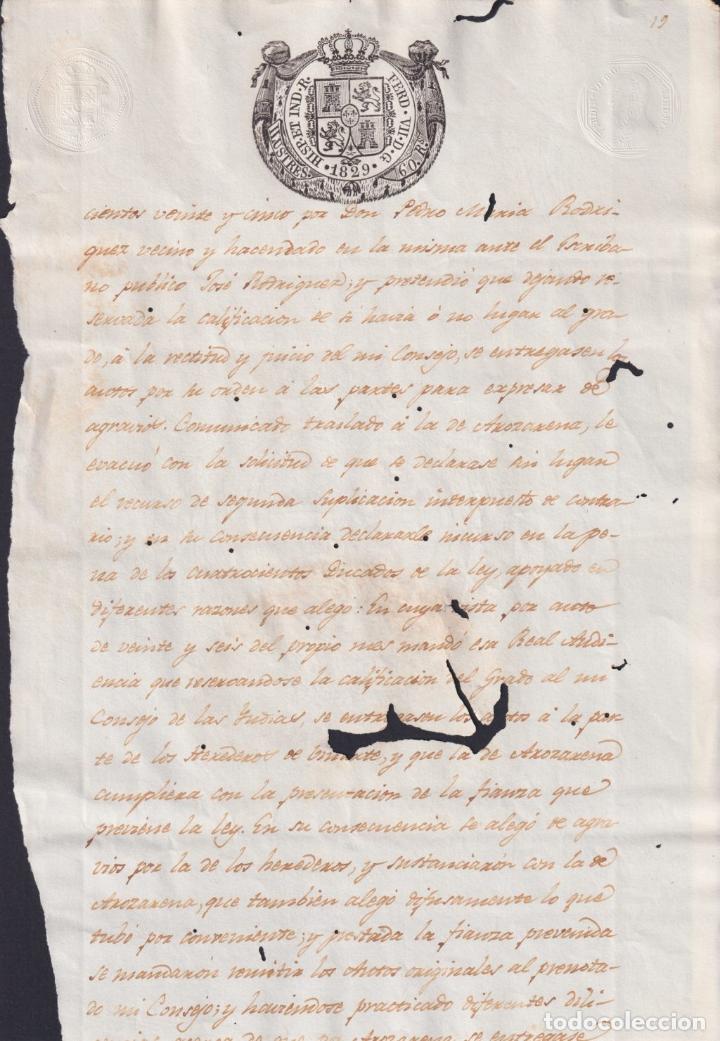 19
HISP. ET IND. R. FERD. VII. D. G.
1829
60. Rs.
cientos veinte y cinco por Don Pedro Maria Rodri-
guez vecino y hacendado en la misma ante el Escriba-
no publico José Rodriguez; y pretendió que dejando re-
servada la calificacion de si havia ó no lugar al gra-
do, á la rectitud y juicio del mi Consejo, se entregasen los
autos por su orden á las partes para expresar de
agravios. Comunicado traslado á la de Arozarena, le
evacuó con la solicitud de que se declarase sin lugar
el recurso de segunda suplicacion interpuesto de contra-
rio; y en su consecuencia declararle incurso en la pe-
na de los cuatrocientos Ducados de la ley, apoyado en
diferentes razones que alegó: En cuya vista por auto
de veinte y seis del propio mes mandó esa Real Audi-
encia que reservandose la calificacion del Grado al mi
Consejo de las Yndias, se entregasen los autos á la par-
te de los Herederos de y que la de Arozarena
cumpliera con la presentacion de la fianza que
previene la ley. En su consecuencia se alegó de agra-
vios por la de los herederos, y sustanciarón con la de
Arozarena, que también alegó difusamente lo que
tubó por conveniente; y prestada la fianza prevenida
se mandarón remitir los Autos originales al prenota-
do mi Consejo; y haviendose practicado diferentes dili-
cerca de que por Arozarena se entregase
todocoleccion.net